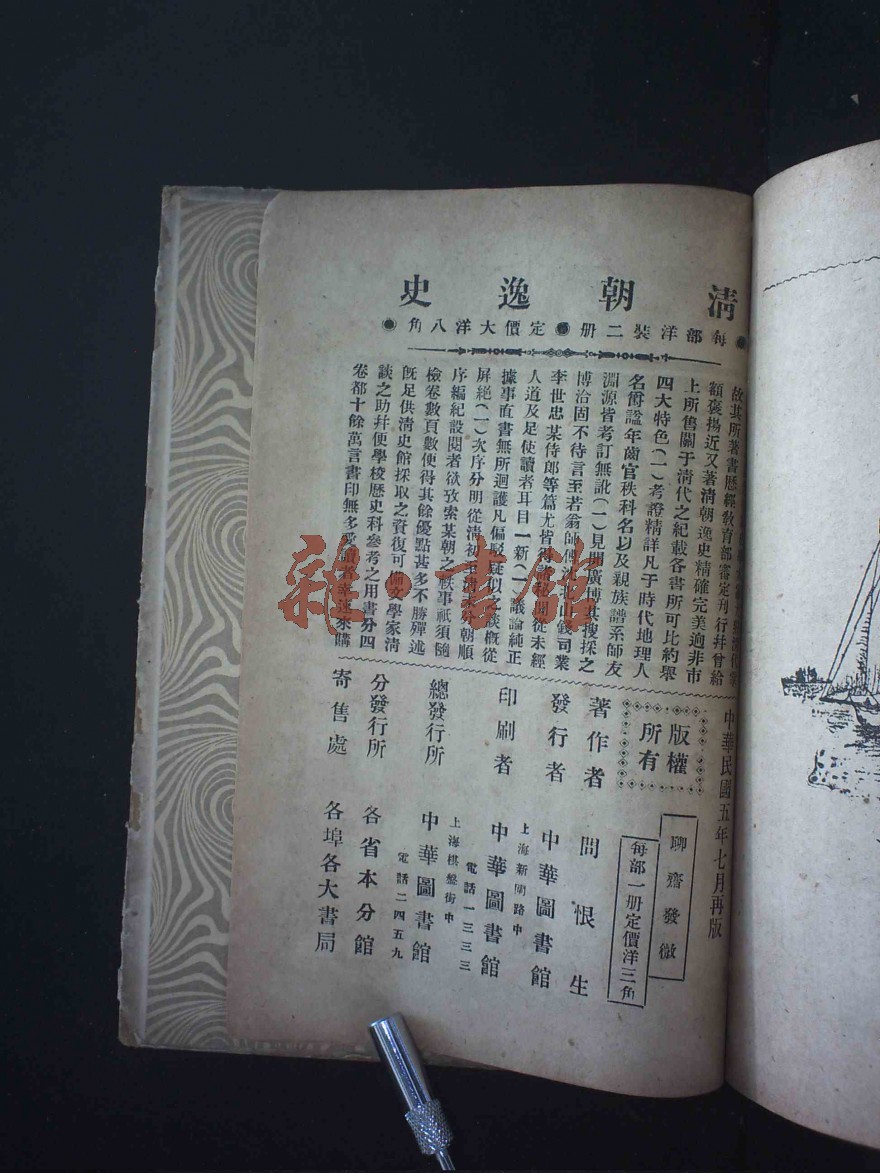 清朝逸史
每部洋裝二冊●定價大洋八角●
故其所著書歷經教育部審定刊行幷曾給
額褒揚近又著清朝逸史精確完美逈非市
上所售關于清代之紀載各書所可比約舉
四大特色(一)考證精詳凡于時代地理人
名爵諡年齒官秩科名以及親族譜系師友
淵源皆考訂無訛(一)見聞廣博其搜採之
博洽固不待言至若翁師傅沈北山錢司業
李世忠某侍郎等篇尤皆得諸秘聞從未經
人道及足使讀者耳目一新(一)議論純正
據事直書無所迴護凡偏駁疑似之談槪從
屏絕(一)次序分明從清初至清末分朝順
序編紀設閱者欲攷索某朝之軼事祇須隨
檢卷數頁數便得其餘優點甚多不勝殫述
旣足供清史館採取之資復可備文學家清
談之助幷便學校歷史科參考之用書分四
卷都十餘萬言書印無多愛讀者幸速來購
中華民國五年七月再版
聊齋發微
每部一册定價洋三角
版權所有
著作者 問恨生
發行者 中華圖書館
上海新閘路中
印刷者 中華圖書館
電話一三三三
上海棋盤街中
總發行所 中華圖書館
電話二四五九
分發行所 各省本分館
寄售處 各埠各大書局
雜·書館